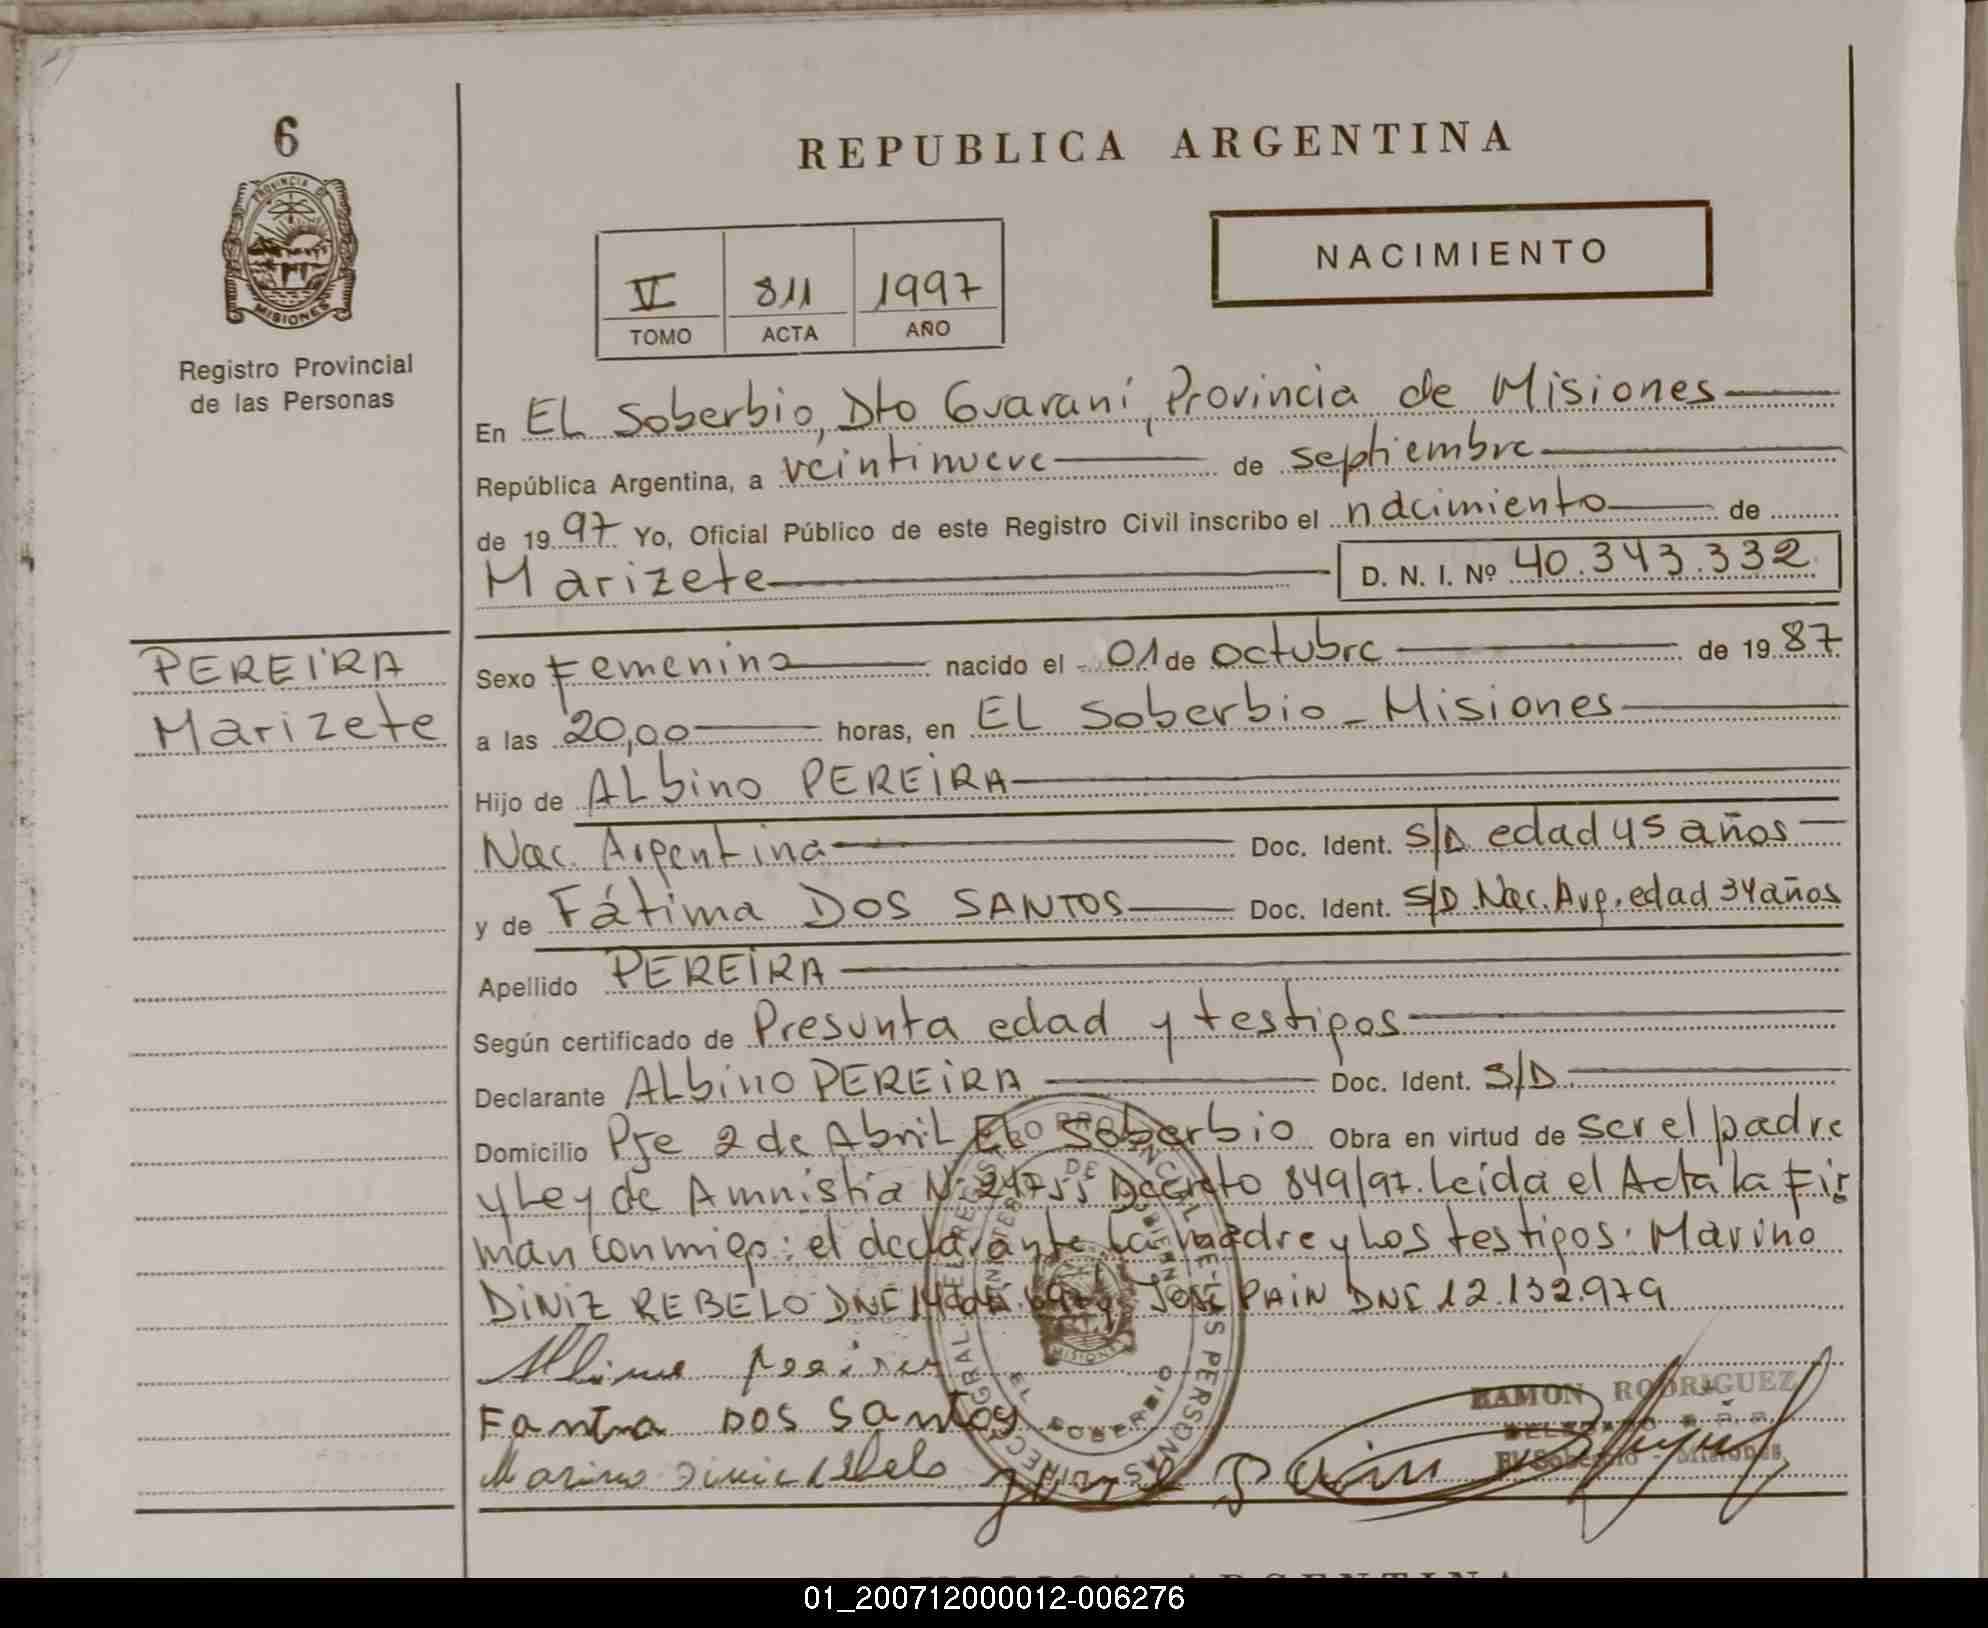 6
PROVINCIA DE
MISIONES
Registro Provincial
de las Personas
REPUBLICA ARGENTINA
NACIMIENTO
VI 811 1997
TOMO ACTA AÑO
En EL Soberbio, Dto Guaraní, Provincia de Misiones
República Argentina, a veintinueve de septiembre
de 1997 Yo, Oficial Público de este Registro Civil inscribo el nacimiento de
Marizete D. N. I. Nº 40.343.332
PEREIRA
Marizete
Sexo Femenino nacido el 01 de octubre de 1987
a las 20,00 horas, en EL Soberbio - Misiones
Hijo de ALbino PEREIRA
Nac. Argentina Doc. Ident. S/D edad 45 años
y de Fátima DOS SANTOS Doc. Ident. S/D Nac. Arg. edad 34 años
Apellido PEREIRA
Según certificado de Presunta edad y testigos
Declarante ALbino PEREIRA Doc. Ident. S/D
Domicilio Pje 2 de Abril El Soberbio Obra en virtud de ser el padre
y Ley de Amnistia Nº 24755 Decreto 849/97. Leida el Acta la Fir
man conmigo: el declarante La madre y Los testigos: Marino
DINIZ REBELO DNI José PAIN DNI 12.132.979
Albino Pereira
Fantia DOS Santos
Marino Diniz Rebelo
José Pain
RAMON RODRIGUEZ
DELEGADO
El Soberbio - Misiones
EL SOBERBIO
MISIONES
REPUBLICA ARGENTINA
01_200712000012-006276